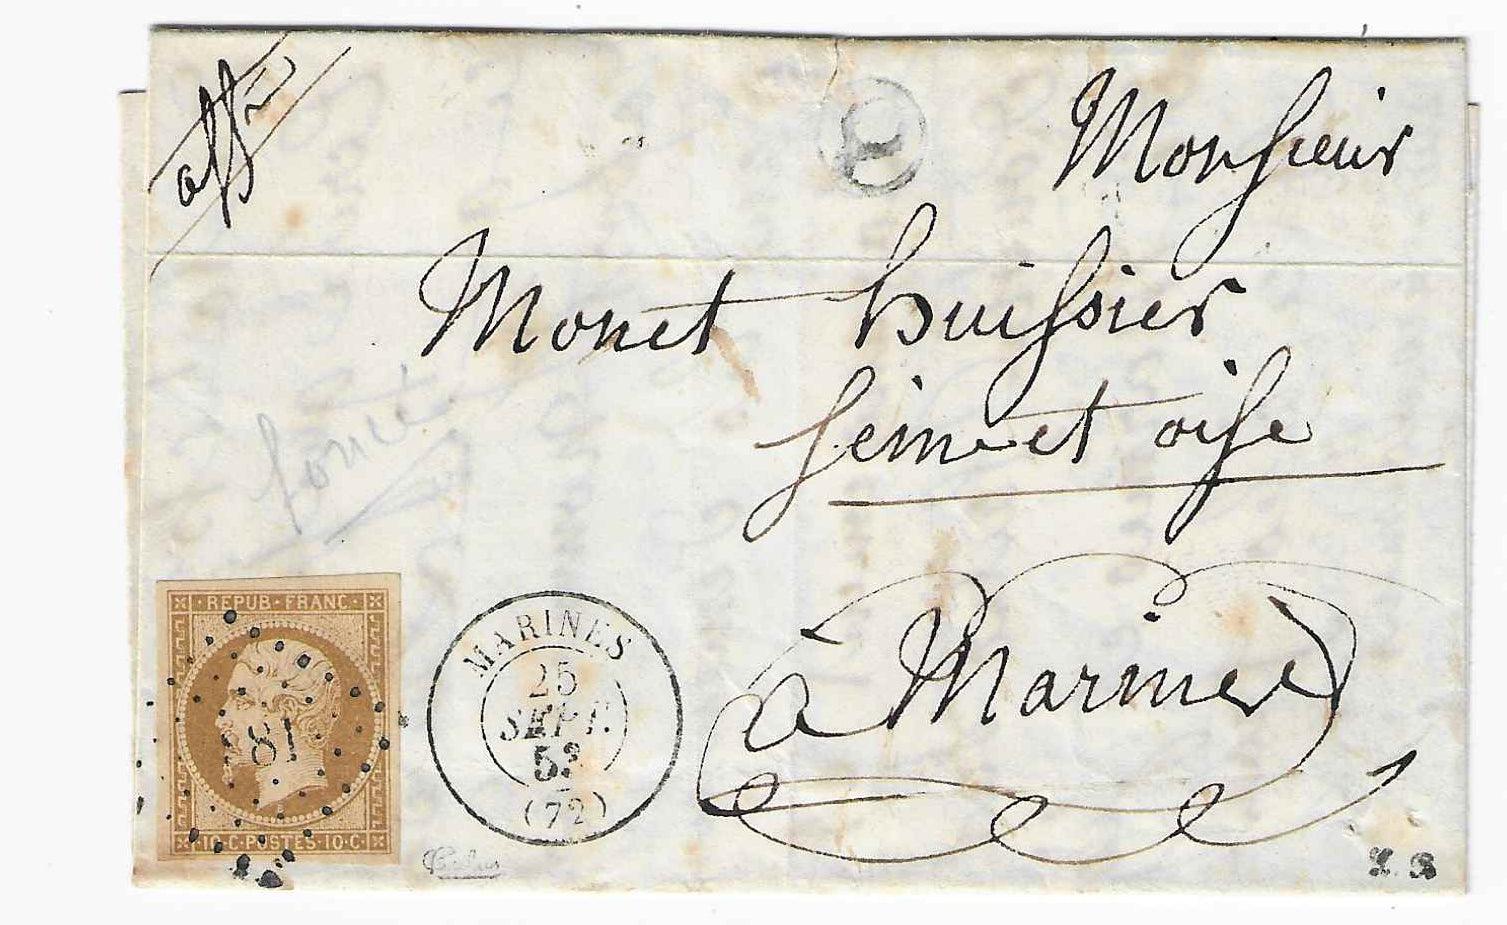 affr
Monsieur
Monet huissier
Seine et oise
à Marines
foncé
REPUB·FRANC·
·10·C·POSTES·10·C·
MARINES
25
SEPT.
53
(72)
L. B